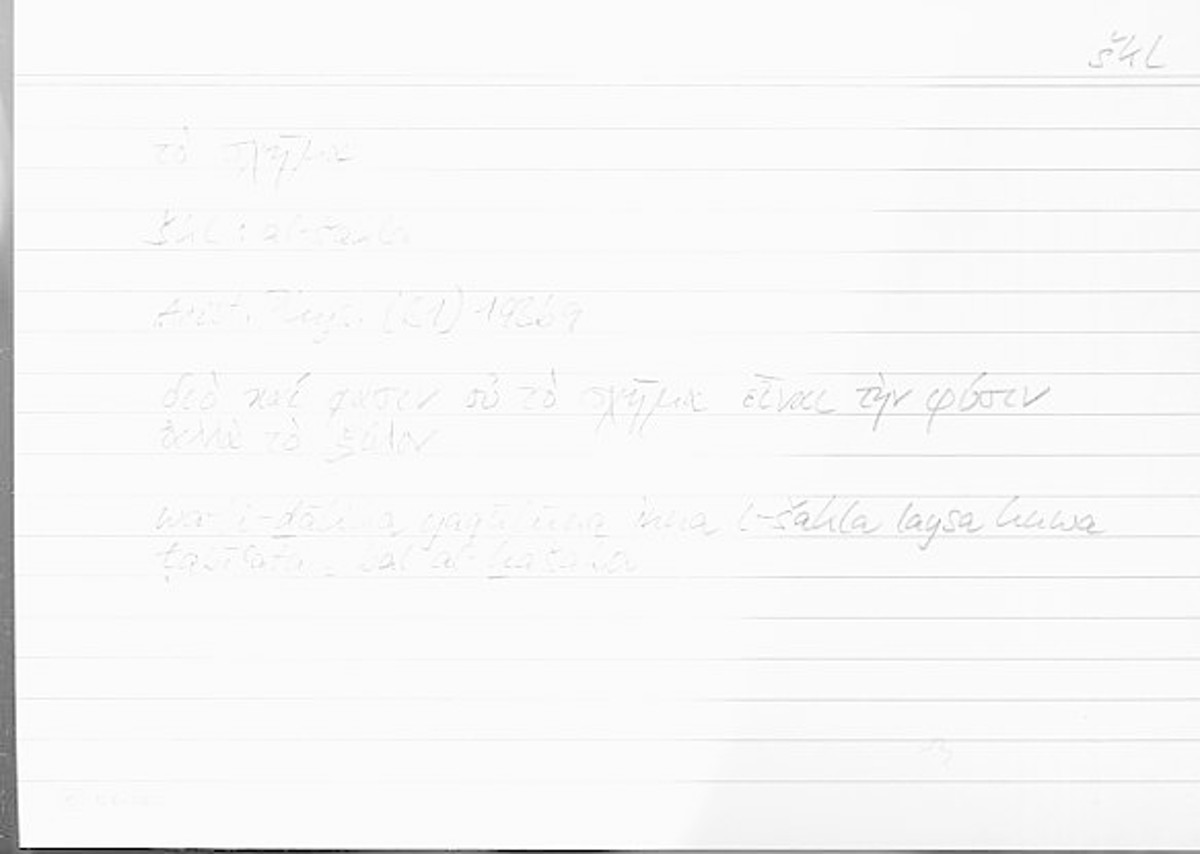 škl
τὸ σχῆμα
škl : al-šaklu
Arist. Phys. (B1) 193b9
διὸ καί φασιν οὐ τὸ σχῆμα εἶναι τὴν φύσιν
ἀλλὰ τὸ ξύλον
wa-li-ḏālika yaqūlūna inna l-šakla laysa huwa
ṭabīʿatu bal al-ḫašaba